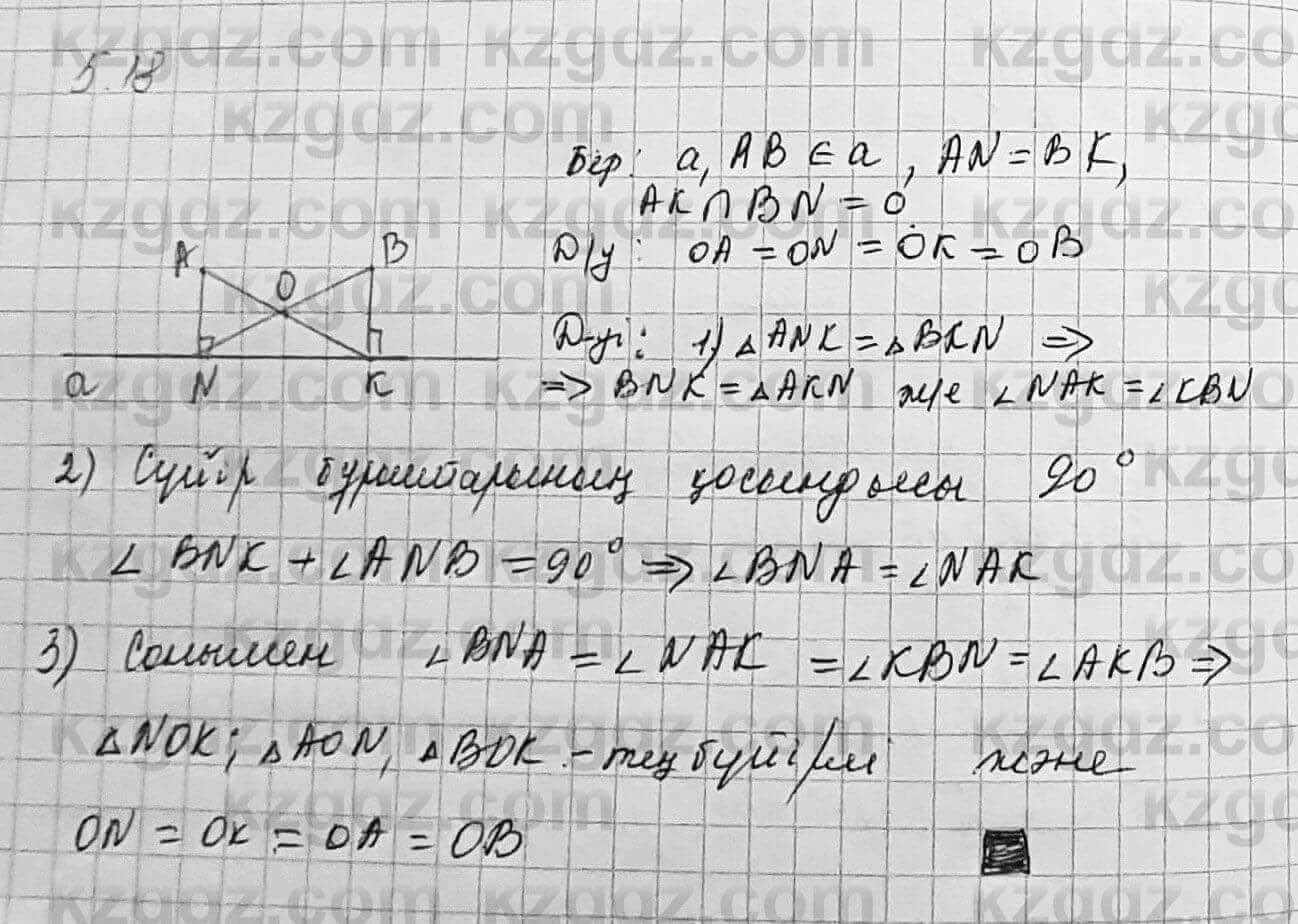 kzgdz.com
5.18
Бер: a, AB ∈ a, AN = BK,
AK ∩ BN = O
Д/у: OA = ON = OK = OB
A B O
a N K
Д-уі: 1) △ANK = △BKN ⇒
⇒ BNK = △AKN и/е ∠NAK = ∠KBN
2) Сүйір бұрыштарының қосындысы 90°
∠BNK + ∠ANB = 90° ⇒ ∠BNA = ∠NAK
3) Сонымен ∠BNA = ∠NAK = ∠KBN = ∠AKB ⇒
△NOK; △AON, △BOK - тең бүйір/лі және
ON = OK = OA = OB